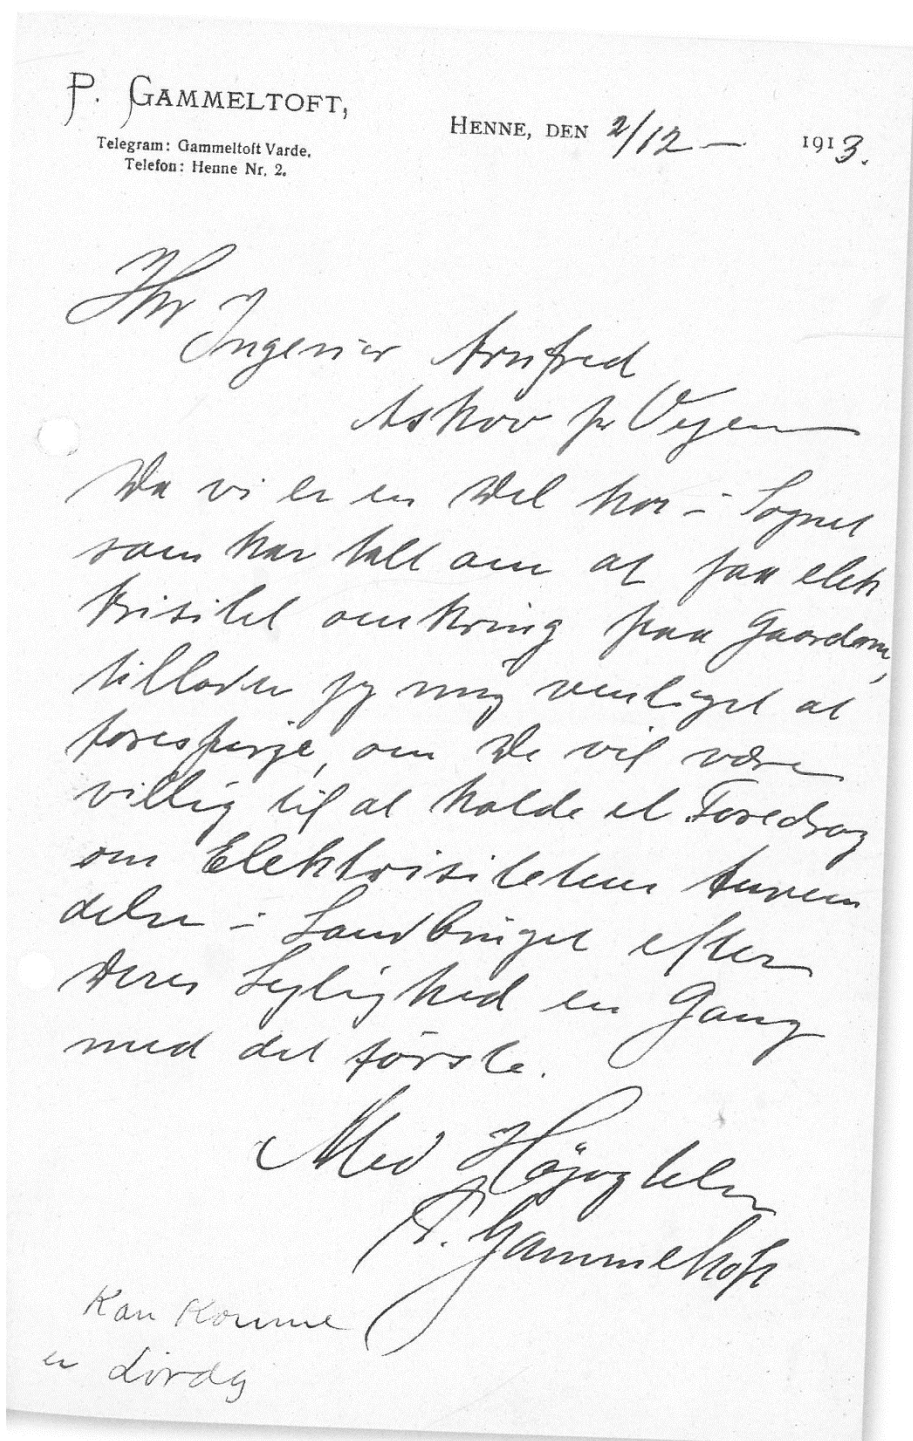 P. GAMMELTOFT,
Telegram: Gammeltoft Varde.
Telefon: Henne Nr. 2.
HENNE, DEN 2/12 – 1913.
Hr Ingeniør Arnfred
Askov pr Vejen
Da vi er en Del her i Sognet
som har talt om at faa elek
trisitet omkring paa Gaardene,
tillader jeg mig venligst at
forespørge, om De vil være
villig til at holde et Foredrag
om Elektrisitetens Anven
delse i Landbruget efter
Deres Lejlighed en Gang
med det første.
Med Højagtelse
P. Gammeltoft
Kan Komme
en Lørdag